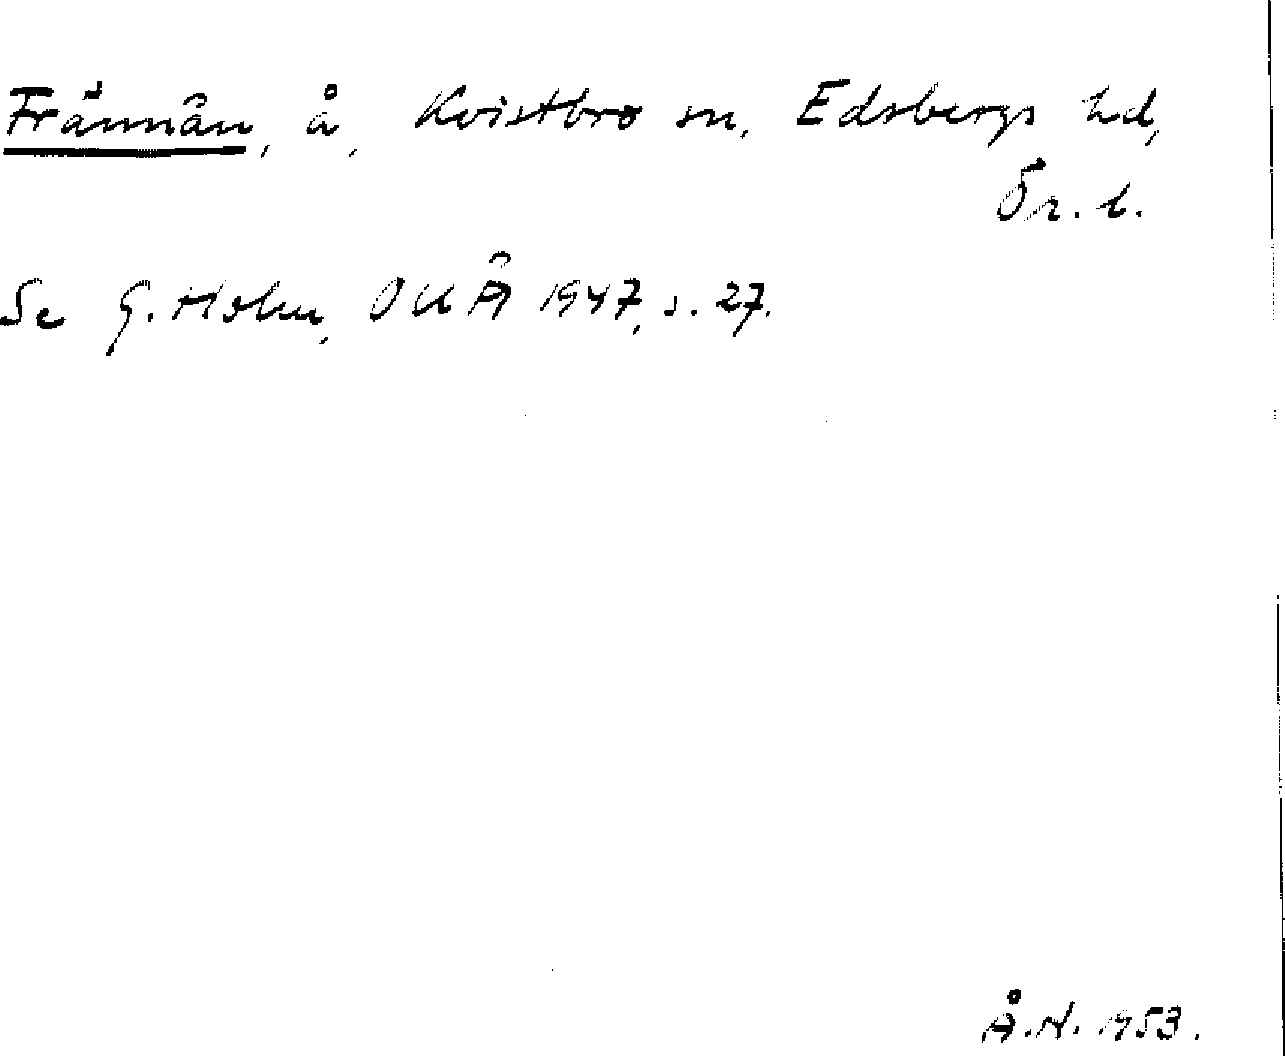 Frännån, å, Kvistbro sn, Edsbergs hd,
Ör. l.
Se G. Holm, OUÅ 1947, s. 27.
Å.H. 1953.